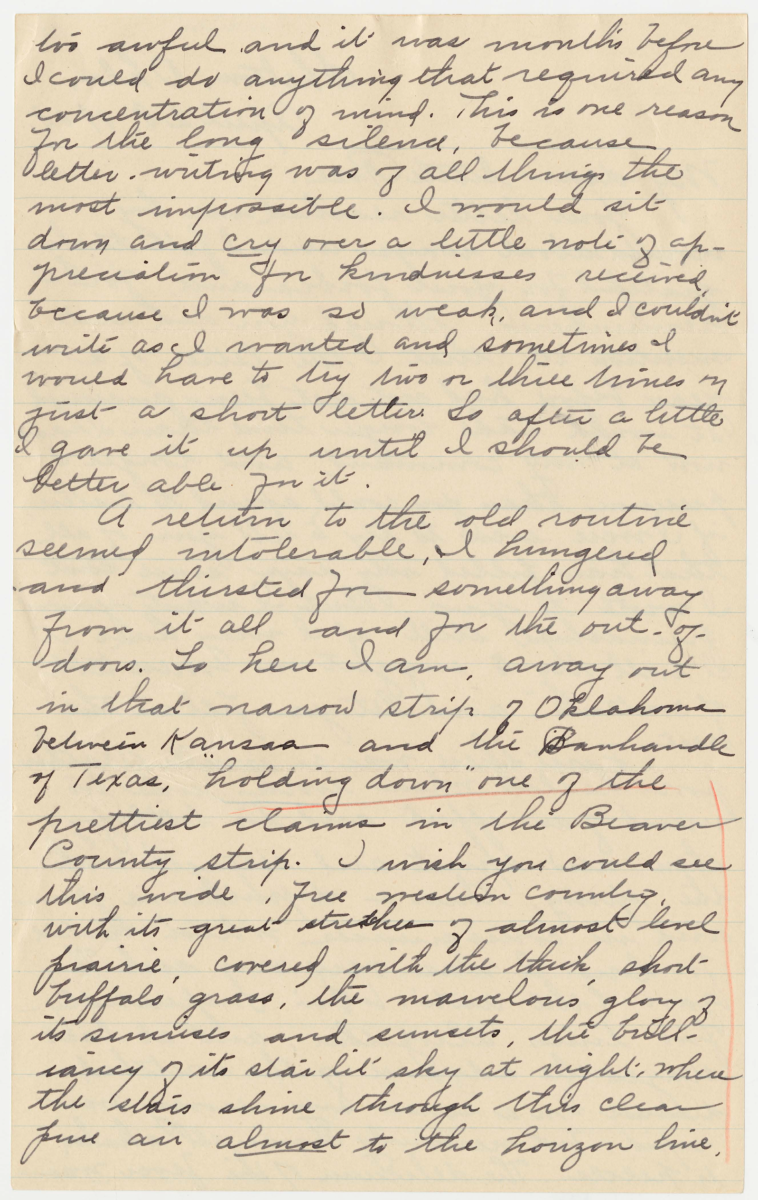 too awful and it was months before
I could do anything that required any
concentration of mind. This is one reason
for the long silence, because
letter-writing was of all things the
most impossible. I would sit
down and cry over a little note of ap-
preciation for kindnesses received,
because I was so weak, and I couldn't
write as I wanted and sometimes I
would have to try two or three times on
just a short letter. So after a little
I gave it up until I should be
better able for it.
A return to the old routine
seemed intolerable, I hungered
and thirsted for something away
from it all and for the out-of-
doors. So here I am, away out
in that narrow strip of Oklahoma
between Kansas and the Panhandle
of Texas, "holding down" one of the
prettiest claims in the Beaver
County strip. I wish you could see
this wide, free western country,
with its great stretches of almost level
prairie, covered with the thick, short
buffalo grass, the marvelous glory of
its sunrises and sunsets, the brill-
iancy of its star lit sky at night, where
the stars shine through this clear
pure air almost to the horizon line,